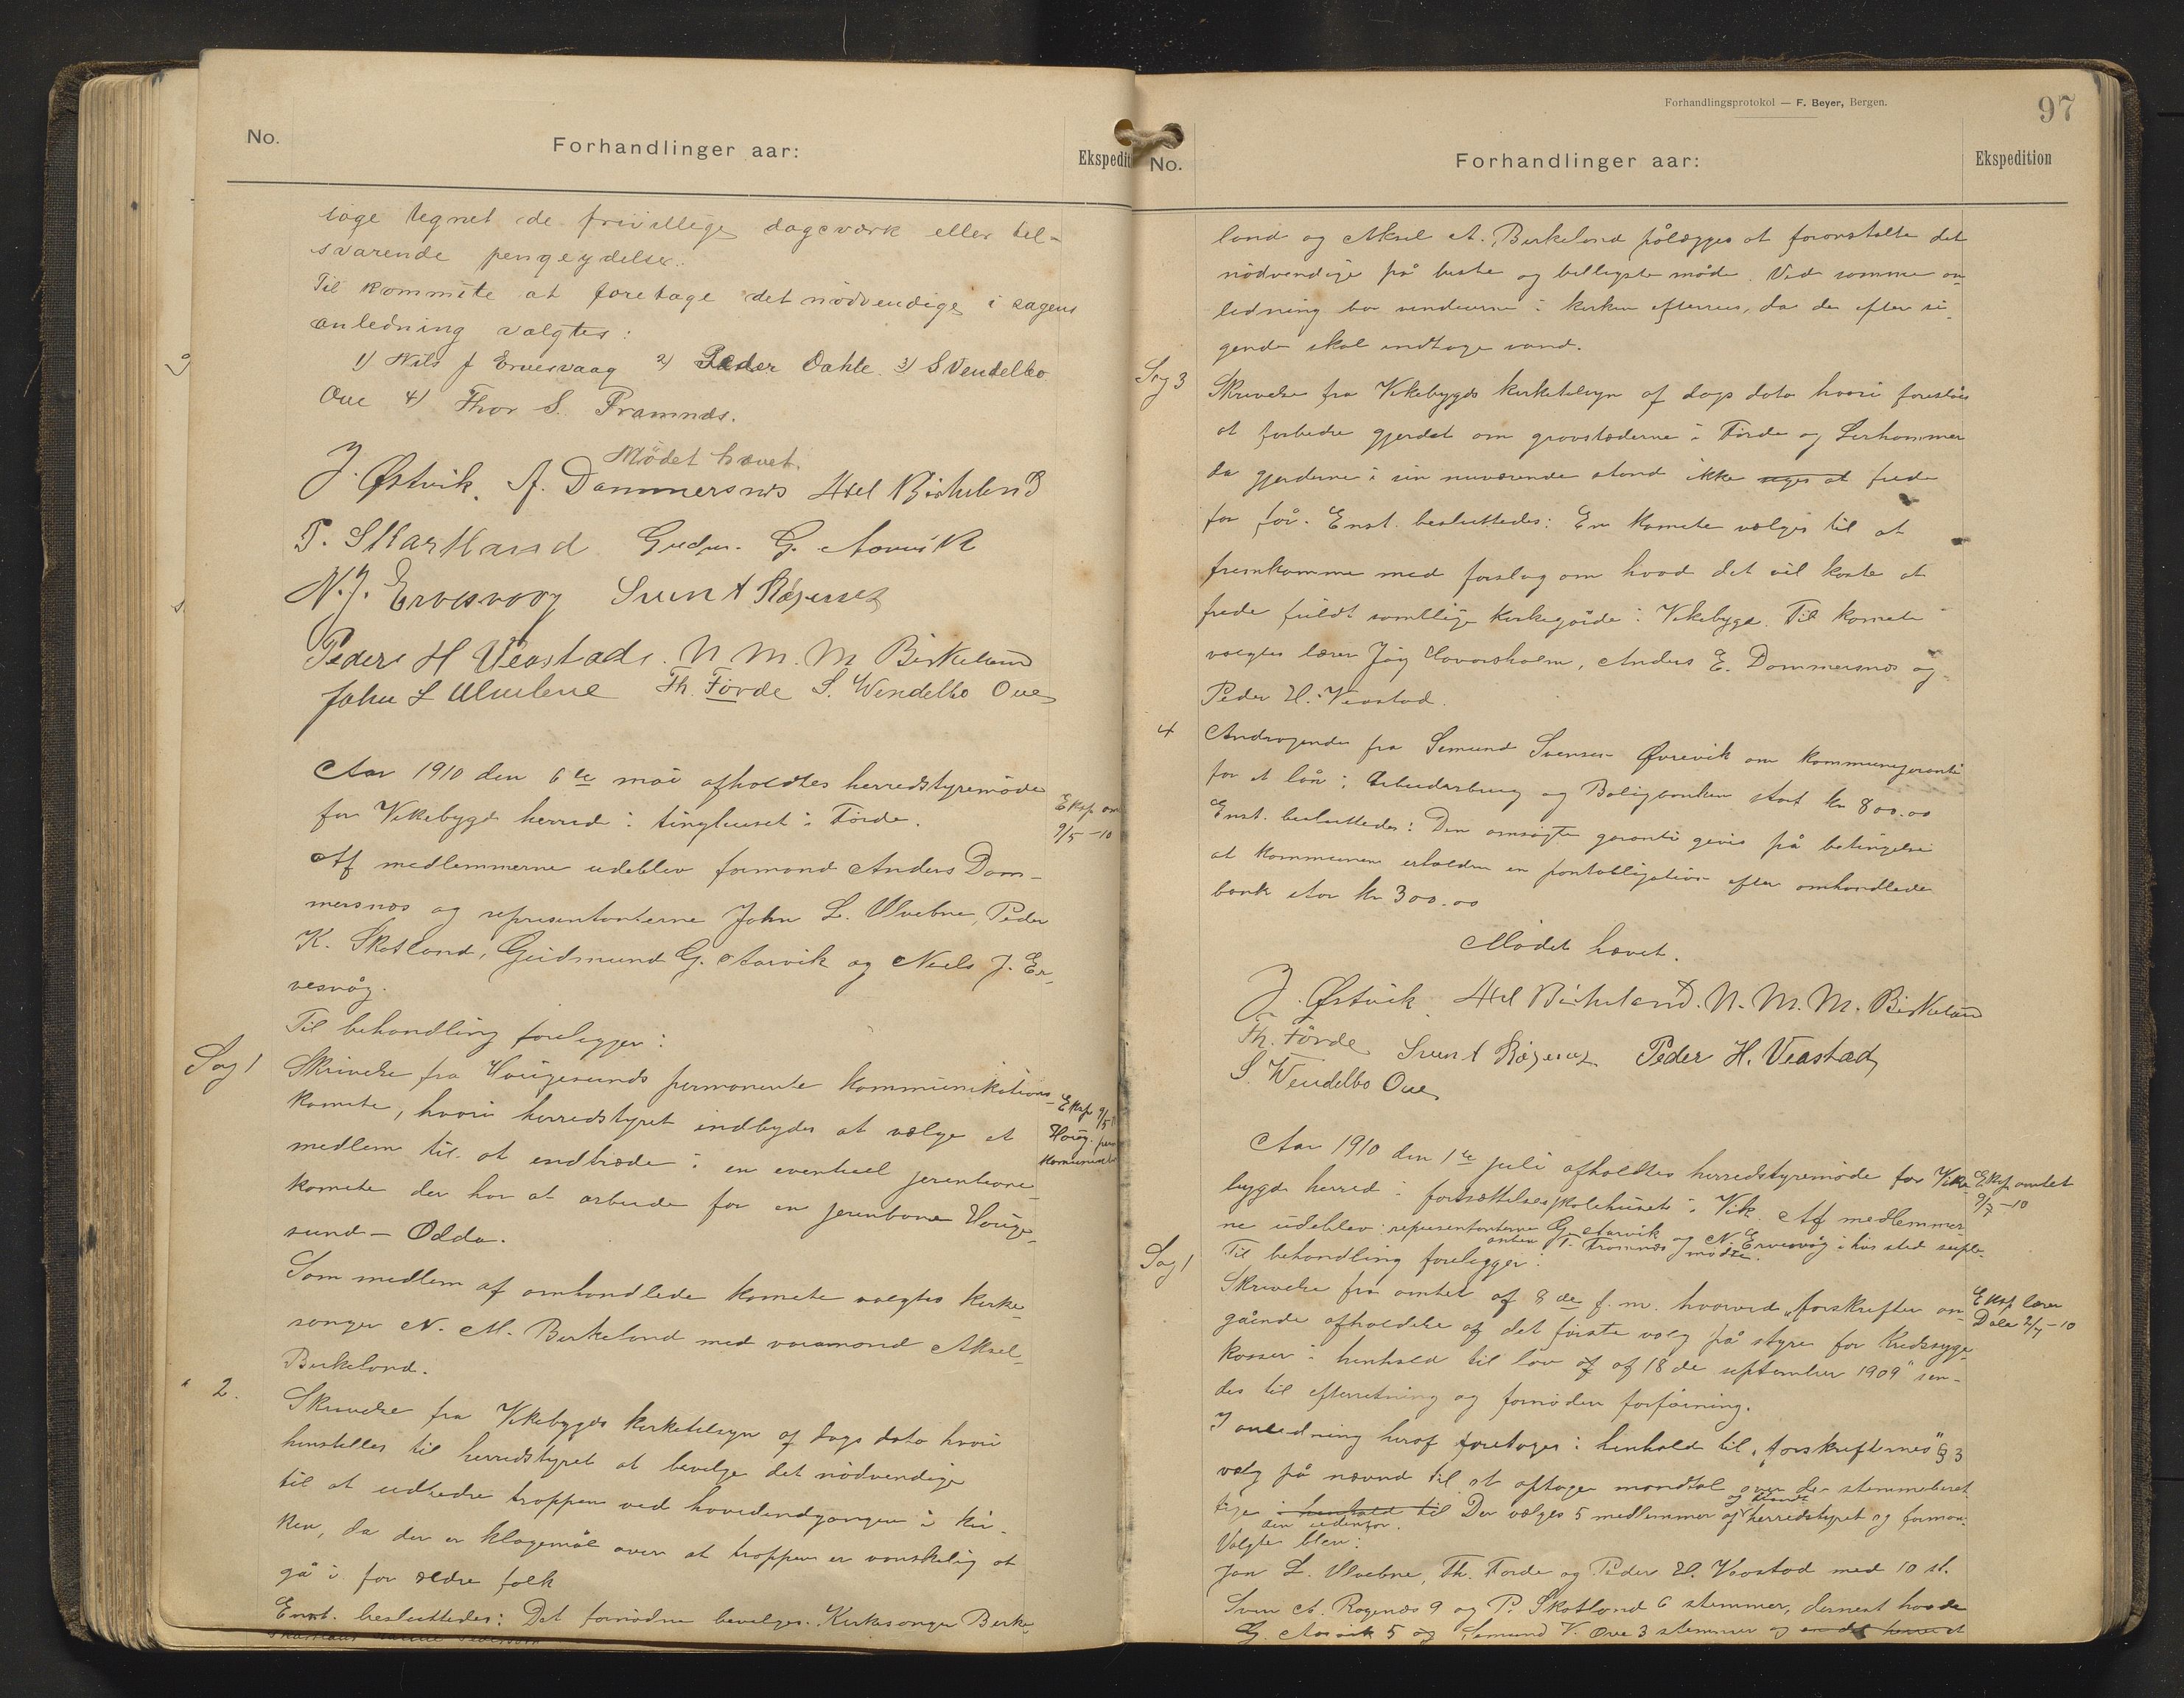 No.
Forhandlinger aar:
Ekspedit
tage tegnet de frivillige dagsværk eller til-
svarende pengeydelse.
Til kommite at foretage det nödvendige i sagens
anledning valgtes:
1) Nils J Ervesvaag 2) Peder Dahle 3) S Vendelbo
Oue 4) Thor S. Framnæs.
Mödet hævet.
J. Østvik. A. Dommersnes Axel Birkeland
P. Skartland Gudm. G. Aarvik
N. J. Ervesvaag Svend A Røgenes
Peder H Veastad. N. M. M Birkeland
John L Ulvebne Th. Förde S. Wendelbo Oue
Aar 1910 den 6te mai afholdtes herredstyremöde
for Vikebygds herred i tinghuset i Förde.
Eksp am
9/5-10
Af medlemmerne udeblev formand Anders Dom-
mersnes og representanterne John L. Ulvebne, Peder
K. Skotland, Gudmund G. Aarvik og Neels J. Er-
vesvåg.
Til behandling foreligger:
Sag 1
Skrivelse fra Haugesunds permanente kommunikations-
komite, hvori herredstyret indbydes at vælge et
medlem til at indtræde i en eventuel jernbane-
komite der har at arbeide for en jernbane Hauge-
sund - Odda.
Eksp 9/5
Haug. per
Komunikat
Som medlem af omhandlede komite valgtes kirke-
sanger N. M. Birkeland med varamand Aksel
Birkeland.
" 2.
Skrivelse fra Vikebygds kirketilsyn af dags dato hvori
henstilles til herredstyret at bevilge det nödvendige
til at udbedre trappen ved hovedindgangen i kir-
ken, da der er klagemål over at trappen er vanskelig at
gå i for ældre folk
Enst. besluttedes: Det fornødne bevilges. Kirkesanger Birke-
Forhandlingsprotokol — F. Beyer, Bergen.
97
No.
Forhandlinger aar:
Ekspedition
land og Aksel A. Birkeland pålægges at foranstalte det
nödvendige på beste og billigste måde. Ved samme an-
ledning bør vinduerne i kirken efterses, da de efter si-
gende skal indtage vand.
Sag 3
Skrivelse fra Vikebygds kirketilsyn af dags dato hvori foreslåes
at forbedre gjerdet om gravstæderne i Förde og Lerhammer
da gjerderne i sin nuværende stand ikke siges at frede
for får. Enst. besluttedes: En komite vælges til at
fremkomme med forslag om hvad det vil koste at
frede fuldt samtlige kirkegårde i Vikebygd. Til komite
valgtes lærer Jåg Havorsholm, Anders E. Dommersnes og
Peder H. Veastad.
4
Andragende fra Semund Svensen Øvrevik om kommunegaranti
for et lån i Arbeiderbrug og Boligbanken stort kr 800.00
Enst. besluttedes: Den ansøgte garanti gives på betingelse
at kommunen erholder en pantobligation efter omhandlede
bank stor kr 300.00
Mödet hævet.
J. Østvik. Axel Birkeland. N. M. M. Birkeland
Th. Förde Svend A Røgenes Peder H. Veastad
S. Wendelbo Oue
Aar 1910 den 1te juli afholdtes herredstyremöde for Vike-
bygds herred i fortsættelsesskolehuset i Vik. Af medlemmer-
ne udeblev: representanterne G. Aarvik og N. Ervesvåg i hvis sted suple-
anten T. Framnes mødte.
Eksp amtet
9/7-10
Til behandling foreligger:
Sag 1
Skrivelse fra amtet af 8de f. m. hvorved "forskrifter an-
gående afholdelse af det første valg på styre for Kredssyge-
kasser i henhold til lov af af 18de september 1909" sen-
des til efterretning og fornøden forføining.
Eksp lærer
Dale 2/7-10
I anledning heraf foretages i henhold til "forskrifternes" § 3
valg på nævnd til at optage mandtal over de stemmeberet-
tige i henhold til Der vælges 5 medlemmer af herredstyret og forman-
den udenfor.
Valgte blev:
Jon L. Ulvebne, Th. Förde og Peder H. Veastad med 10 st.
Sven A. Røgenes 9 og P. Skotland 6 stemmer, dernest havde
G. Aarvik 5 og Semund V. Oue 3 stemmer og